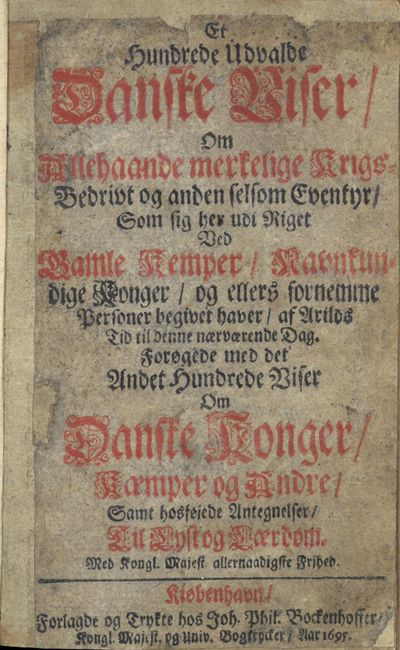 Et
Hundrede Udvalde
Danske Viser/
Om
Allehaande merkelige Krigs-
Bedrivt og anden selsom Eventyr/
Som sig her udi Riget
Ved
Gamle Kemper/ Navnkun-
dige Konger/ og ellers fornemme
Personer begivet haver/ af Arilds
Tid til denne nærværende Dag.
Forøgede med det
Andet Hundrede Viser
Om
Danske Konger/
Kæmper og Andre/
Samt hosføjede Antegnelser/
Til Lyst og Lærdom.
Med Kongl. Majest. allernaadigste Frihed.
Kiøbenhavn/
Forlagde og Trykte hos Joh. Phil. Bockenhoffer/
Kongl. Majest. og Univ. Bogtrycker/ Aar 1695.